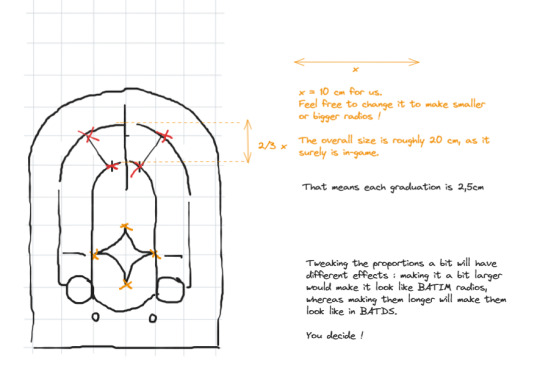 x
x = 10 cm for us.
Feel free to change it to make smaller
or bigger radios !
2/3 x
The overall size is roughly 20 cm, as it
surely is in-game.
That means each graduation is 2,5cm
Tweaking the proportions a bit will have
different effects : making it a bit larger
would make it look like BATIM radios,
whereas making them longer will make them
look like in BATDS.
You decide !